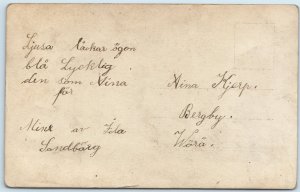 Ljusa läckar ögon
blå Lycklig
den som Nina
får
Minne av Ida
Sandbärg
Nina Kjerp.
Bergby.
Wörå.